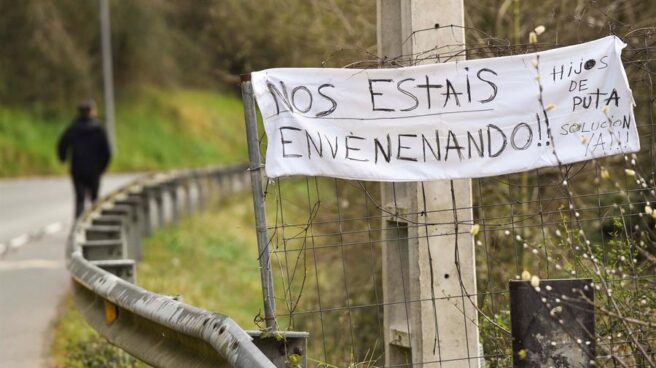 NOS ESTAIS
ENVENENANDO!!
HIJOS
DE
PUTA
SOLUCION
YA!!!